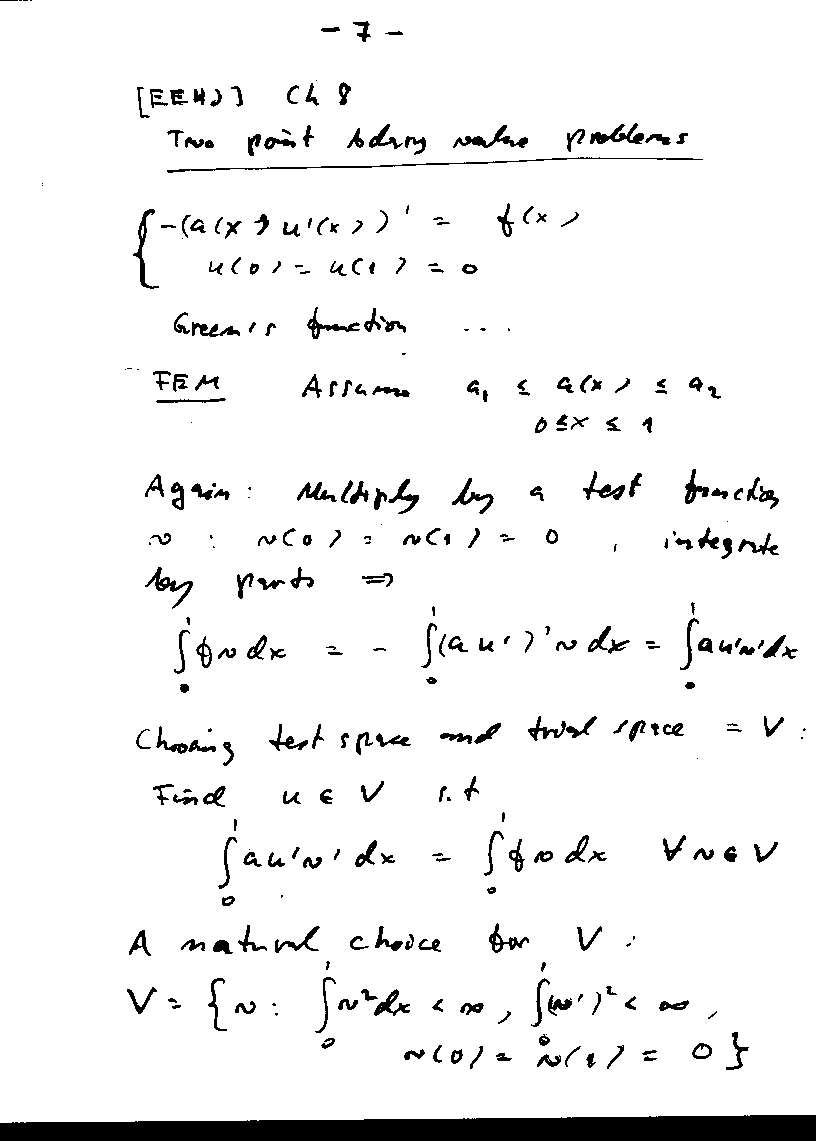 - 7 -
[EEHJ] Ch 8
Two point bdry value problems
{ -(a(x) u'(x))' = f(x)
u(0) = u(1) = 0
Green's function ...
FEM Assume a₁ ≤ a(x) ≤ a₂
0 ≤ x ≤ 1
Again: Multiply by a test function
v : v(0) = v(1) = 0 , integrate
by parts ⇒
∫₀¹ f v dx = - ∫₀¹ (a u')' v dx = ∫₀¹ a u' v' dx
Choosing test space and trial space = V :
Find u ∈ V s.t
∫₀¹ a u' v' dx = ∫₀¹ f v dx ∀ v ∈ V
A natural choice for V :
V = { v : ∫₀¹ v² dx < ∞ , ∫₀¹ (v')² < ∞ ,
v(0) = v(1) = 0 }